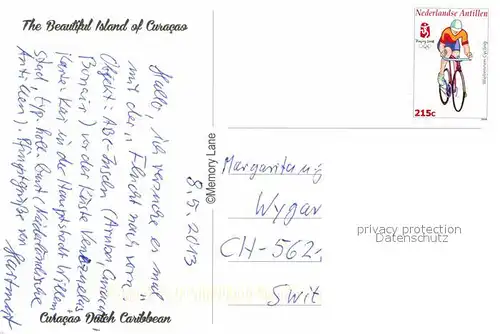 The Beautiful Island of Curaçao
Hallo, ich versuche es mal
mit der "Flucht nach vorn"
Objekt: ABC-Inseln (Aruba Curaçao
Bonair) vor der Küste Venezuelas
Karte: Kai in der Hauptstadt Willem
stad, typ. holl. Bunt (Niederländische
Antillen). Pfingstgrüße von
Hartmut
8.5.2013
Curaçao Dutch Caribbean
©Memory Lane
Nederlandse Antillen
Beijing 2008
215c
Margarita
Wygar
CH-562
Swit
privacy protection
Datenschutz